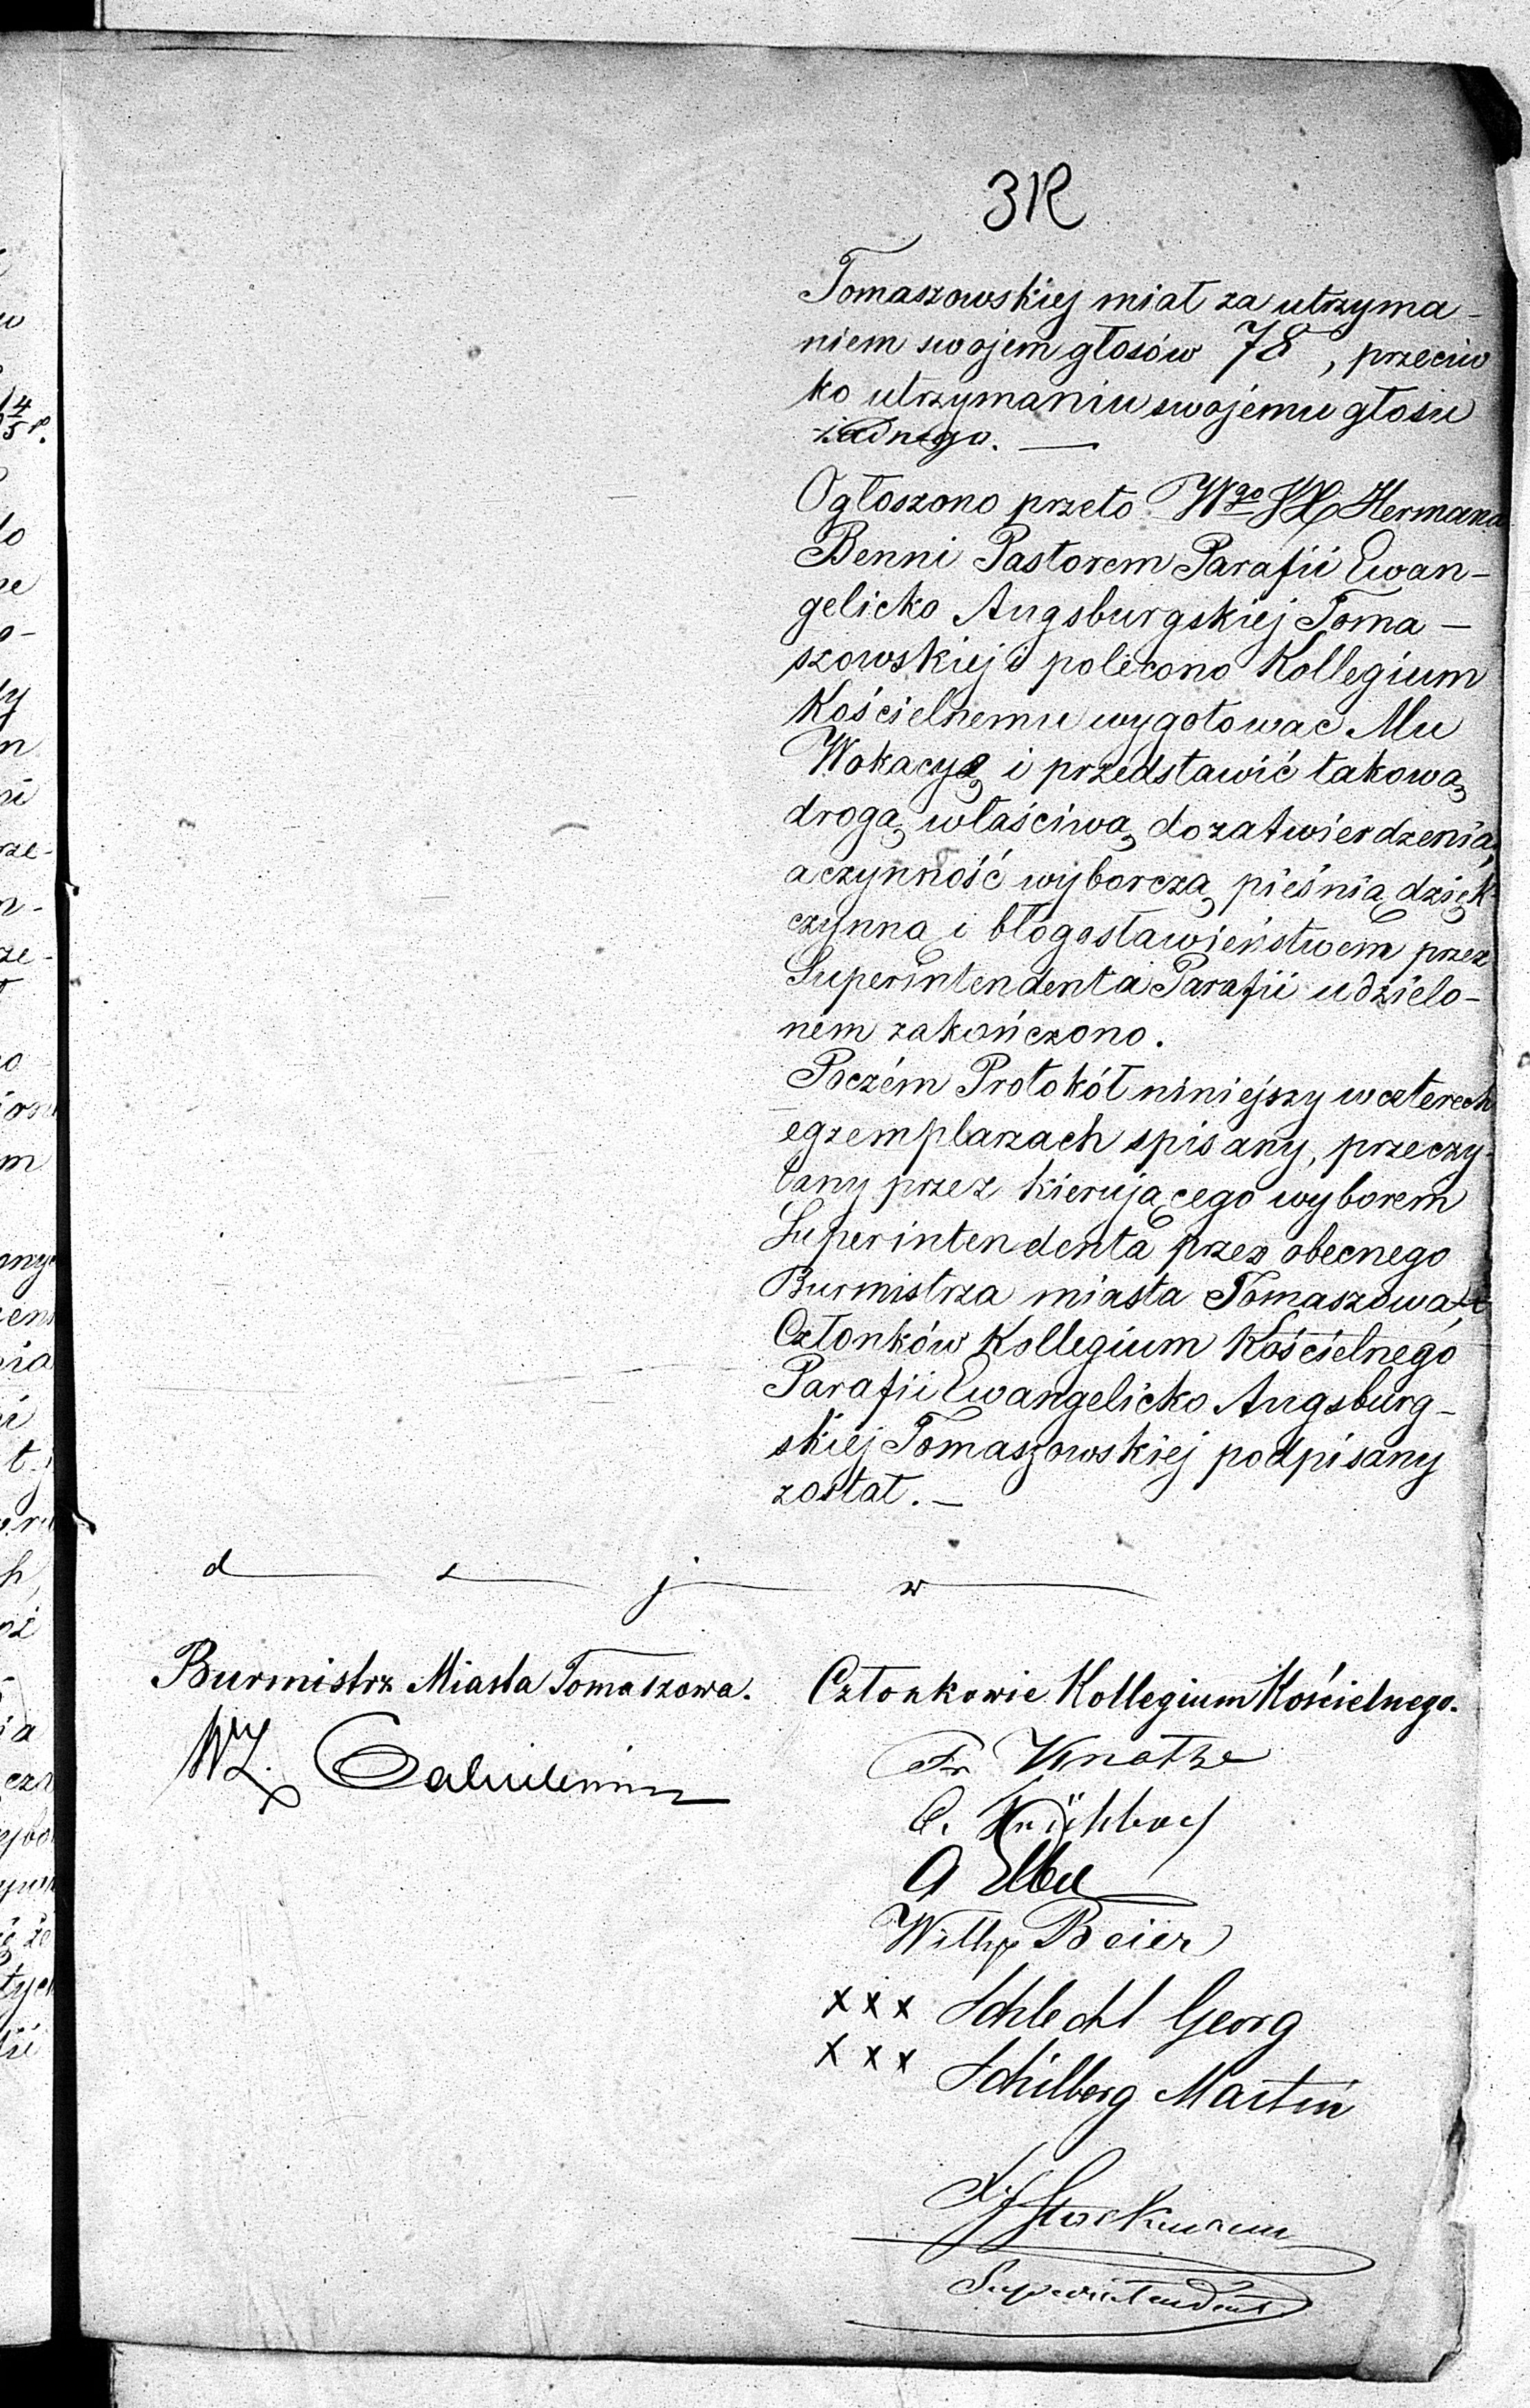 312
Tomaszowskiej miał za utrzyma-
niem swojem głosów 78, przeciw
ko utrzymaniu swojemu głosu
żadnego. —
Ogłoszono przeto Wgo JX Hermana
Benni Pastorem Parafii Ewan-
gelicko Augsburgskiej Toma-
szowskiej i polecono Kollegium
Kościelnemu wygotowac Mu
Wokacyę i przedstawić takową
drogą właściwą do zatwierdzenia,
a czynność wyborczą pieśnią dzięk-
czynną i błogosławieństwem przez
Superintendenta Parafii udzielo-
nem zakończono.
Poczém Protokół niniejszy w czterech
egzemplarzach spisany, przeczy-
tany przez kierującego wyborem
Superintendenta przez obecnego
Burmistrza miasta Tomaszowa, i
Członków Kollegium Kościelnego
Parafii Ewangelicko Augsburg-
skiej Tomaszowskiej podpisany
został. —
Burmistrz Miasta Tomaszowa.
Członkowie Kollegium Kościelnego.
WZ.
Fr. Knothe
C.
A Elbel
Wilh Beier
xxx Schlecht Georg
xxx Schilberg Martin
Superintendent